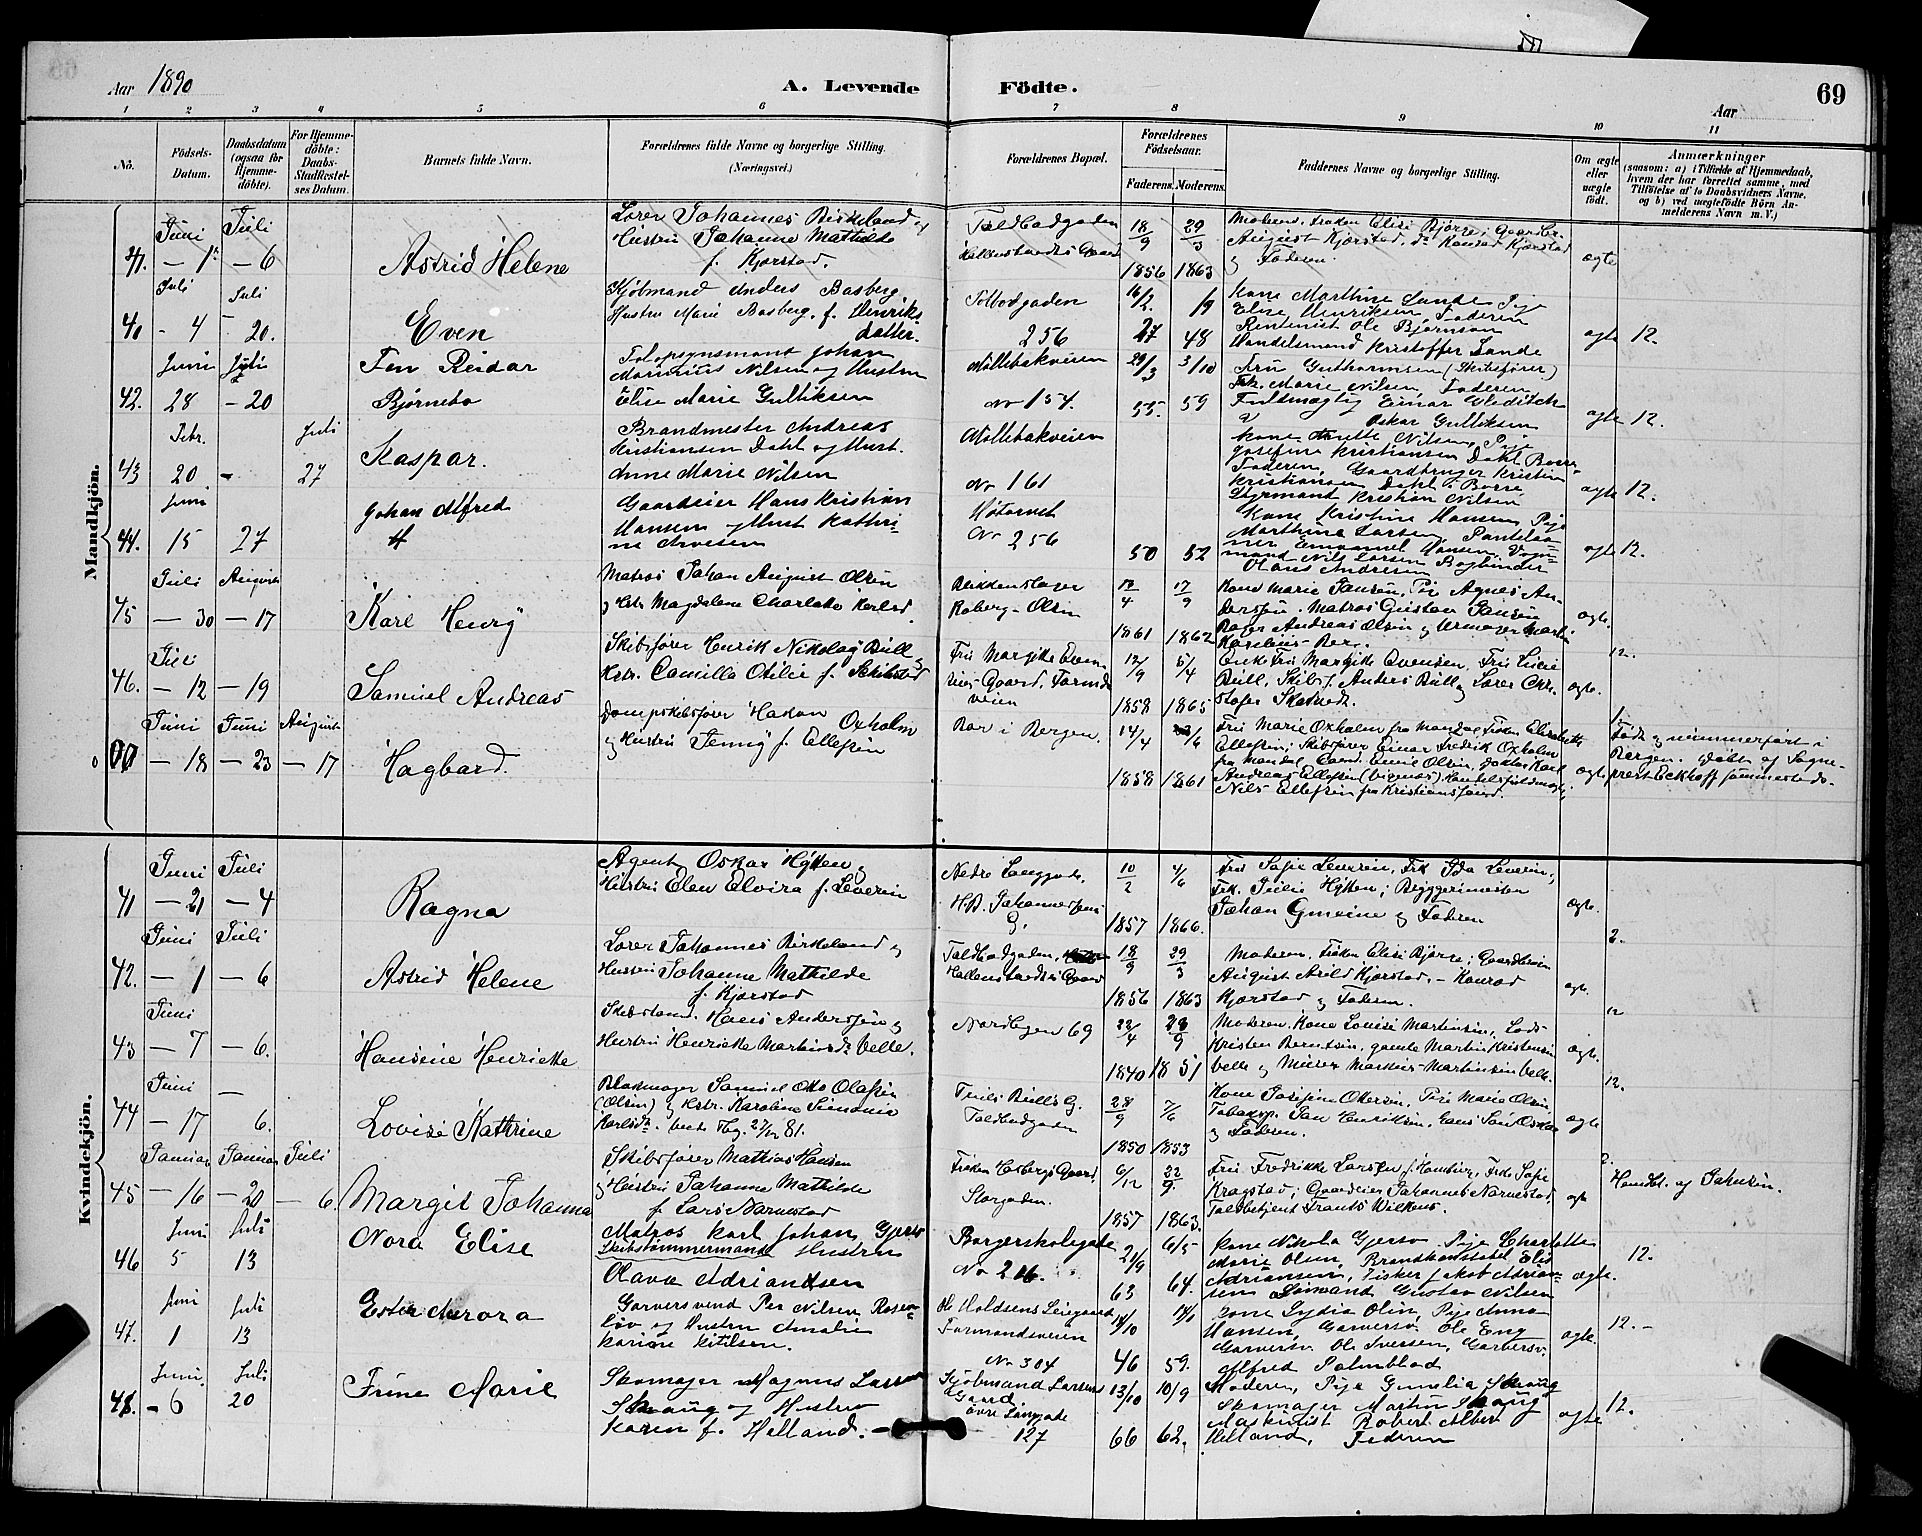 Aar 1890
A. Levende Födte.
Aar
69
1 2 3 4 5 6 7 8 9 10 11
No.
Födsels-
Datum.
Daabsdatum
(ogsaa for
Hjemme-
döbte).
For Hjemme-
döbte:
Daabs-
Stadfæstel-
ses Datum.
Barnets fulde Navn.
Forældrenes fulde Navne og borgerlige Stilling.
(Næringsvei.)
Forældrenes Bopæl.
Forældrenes
Födselsaar.
Faderens. Moderens.
Faddernes Navne og borgerlige Stilling.
Om ægte
eller
uægte
født.
Anmærkninger
(saasom: a) i Tilfælde af Hjemmedaab,
hvem der har forrettet samme, med
Tilföielse af to Daabsvidners Navne,
og b) ved uægtefödte Börn An-
melderens Navn m. V.)
Mandkjön.
41. Juni 1 Juli 6
Astrid Helene
Lærer Johannes Birkeland og
Hustru Johanne Mathilde
f. Kjørstad.
Toldbodgaden
18/9 1856 29/3 1863
Moderen, Frøken Elise Bjørge, Gaardbr.
August Kjørstad, Konrad Kjørstad
og Faderen.
ægte
40 Juli 4 Juli 20.
Even
Kjøbmand Anders Basberg
Hustru Marie Basberg, f. Henriks
datter.
Tolbodgaden
256
16/2 27 1/9 48
Kone Marthine Lande, Pige
Elise Henriksen, Faderen
Rentenist Ole Bjørnson
Handelsmand Kristoffer Lande
ægte 12.
42. Juni 28 Juli 20
Finn Reidar
Bjørnebo
Tolopsynsmand Johan
Mauritius Nilsen og Hustru
Elise Marie Gulliksen
Møllebakveien
No 154.
29/3 55. 3/10 59
Fru Guthormsen (Skibsfører)
Frk. Marie Nilsen, Faderen
Fuldmægtig Einar
Oskar Gulliksen
ægte 12.
43 Febr. 20 - Juli 27
Kaspar.
Brandmester Andreas
Kristiansen Dahl og Hust.
Anne Marie Nilsen
Møllebakveien
No 161
Kone Anette Nilsen, Pige
Josefine Kristiansen Dahl Borre
Faderen, Gaardbruger Kristian
Kristiansen Dahl i Borre
Styrmand Kristian Nilsen
ægte 12.
44. Juni 15 27
Johan Alfred
Gaardeier Hans Kristian
Hansen og Hust Kathri=
ne Arvesen
Høtorvet
No 256
50 52
Kone Kristine Hansen, Pige
Marthine Larsen,
Emanuel Hansen, Vogn=
mand Nils Larsen Bogbinder
Olaus Andresen
ægte 12.
45 Juli 30 August 17
Karl Henry
Matros Johan August Olsen
og Hstr. Magdalena Charlotte Karlsd.
Blikkenslager
Roberg-Olsen
/4 1861 17/9 1862
Kone Marie Jansen, Pige Agnes An-
dersen. Matros Gustav Jansen
Andreas Olsen og Urmager Martin
ægte.
46. Juli 12 19
Samuel Andreas
Skibsfører Henrik Nikolay Bull
Hstr. Camilla Otilie f.
Fru Margitte Even-
sens Gaard, Farmands
veien
12/9 1858 5/4 1865
Enkefru Margitte Evensen, Fru Lucie
Bull, Skibsf. Anders Bull og Lærer Chri-
stofer
ægte.
12.
0 Juni 18 Juni 23 August 17
Hagbard.
Dampskibsfører Hakon Oxholm
og Hustru Jenny f. Ellefsen
Bor i Bergen.
14/4 1858 /6 1861
Fru Marie Oxholm fra Mandal, Frøken Elisabeth
Ellefsen; Skibsfører Einar Fredrik Oxholm
fra Mandal, Emil Olsen, Doktor Karl
Andreas Ellefsen (vicarius) Handelsfuldmægtig
Nils Ellefsen fra Kristiansund.
ægte
Født og nummerført i
Bergen. Døbt af Sogne-
prest Eckhoff sammesteds.
Kvindekjön.
41 Juni 21 Juli 4
Ragna
Agent Oskar Hytten og
Hustru Elen Elvira f. Leverin
Nedre Langgade.
H.B. Johannessens
G.
10/2 1857 4/6 1866.
Fru Sofie Leverin, Frk Ida Leverin,
Frk. Julie Hytten; Byggmester
Johan Gmeine og Faderen
ægte.
42. Juni 1 Juli 6
Astrid Helene
Lærer Johannes Birkeland og
Hustru Johanne Mathilde
f. Kjørstad
Toldbodgaden,
Gaard
18/9 1856 29/3 1863
Moderen, Frøken Elise Bjørge; Gaardbr.
August Arild Kjørstad, - Konrad
Kjørstad og Faderen.
ægte.
12
43 Juni 7 6.
Hansine Henriette
Skibstømr. Hans Anderssen og
Hustru Henriette Martinsdr. Velle.
Nordbyen 69
22/4 1840 28/9 1851
Moderen, Kone Louise Martinsen, Lods
Kristen Berntsen, gamle Martin Kristensen
Velle og Murer Markus Martinsen Velle.
ægte.
12.
44 Juni 17 6.
Lovise Kathrine
Blokmager Samuel Otto Olafsen
(Olsen) og Hstr. Karoline Simonie
Karlsdr. 27/12 81.
Bulls G.
Toldbodgaden
28/9 1850 7/6 1853
Kone Josefine Olsen, Pige Marie Olsen,
Jan Henriksen, hans Søn Oskar
og Faderen.
ægte
45 Januar 16 Januar 20 Juli 6.
Margit Johanna
Skibsfører Mathias Hansen
og Hustru Johanne Mathilde
f. Lars Narnestad
Frøken Hesbergs Gaard
Storgaden.
6/12 1857 22/9 1863.
Fru Fredrikke Larssen, f. Hansen, Frk. Sofie
Kragstad; Gaardeier Johannes Narnestad,
Toldbetjent Frants Wilkens.
ægte
Hmdbt. af Johnsen.
46 Juni 5 Juli 13
Nora Elise
Matros Karl Johan Gjersø
Skibstømmermand Hustru
Olava Adriansen
Borgerskolegade
No 216.
21/9 63 6/5 64.
Kone Nikola Gjersø, Pige Charlotte
Marie Olsen, Brandkonstabel Elis
Adriansen, Fisker Jakob Adrian=
sen, Sømand Gustav Nilsen
ægte. 12.
47. Juni 1 Juli 13
Ester Aurora
Garversvend Per Nilsen Rosen=
løv og Hustru Amalie
Karine Ketilsen.
Ole Holdsens Leiegaard
Farmandsveien
No 304
14/10 46 14/1 59.
Kone Lydia Olin, Pige Anna
Hansen, Garversv. Ole Eng
Garversv. Ole Iversen, Garversv.
Alfred Palmblad
ægte. 12.-
48. Juni 6 Juli 20
Trine Marie
Skomager Magnus Larsen
Skaug og Hustru
Karen f. Helland. -
Kjøbmand Larsens
Gaard
Øvre Langgade
127
13/10 66 10/9 62.
Moderen, Pige Gunelia Skaug
Skomager Martin Skaug
Maskinist Robert Albert
Helland, Faderen
ægte 12.